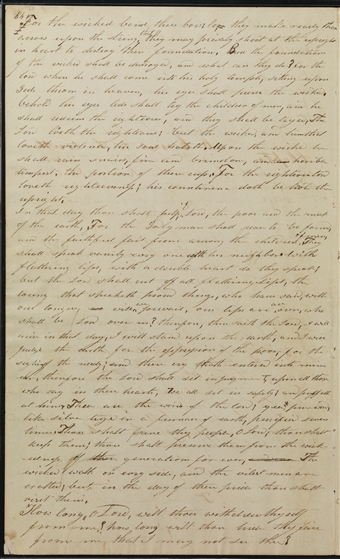 For the wicked bend their bow; lo they make ready their
arrow upon the string, that they may privily shoot at the upright
in heart to destroy their foundation. But the foundation
of the wicked shall be destroyed, and what can they do? For the
Lord when he shall come into his holy temple, sitting upon
Gods throne in heaven, his eyes shall pierce the wicked.
Behold his eye lids shall try the children of men, and he
shall redeem the righteous, and they shall be tryed. The
Lord loveth the righteous; but the wicked, and him that
loveth violence, his soul hateth. Upon the wicked he
shall rain snares, fire and brimston, and an horrible
tempest, the portion of their cup. For the righteous Lord
loveth righteousness; his countenance doth behold the
upright.
In that day thou shalt help, Lord, the poor and the meek
of the earth, For the Godly man shall cease to be found,
and the faithful fail from among the children of men, They
shall speak vanity every one with his neighbor: with
flattering lips, with a double heart do they speak;
but the Lord shall cut off all flattering lips, the
toung that speaketh proud things, who have said, with
our toungue will we prevail, our lips are our own, who
shall be Lord over us? therefore, thus saith the Lord, I will
arise in that day, I will stand upon the earth, and I will
judge the earth for the oppression of the poor, for the
sighing of the needy; and their cry hath entered into mine
ear, therefore the Lord shall sit in judgment upon all those
who say in their hearts, We all sit in safety; and puffeth
at him. These are the words of the Lord; yea, pure words,
like silver tryed in a furnace of earth, purified seven
times. Thou shalt save thy people, O Lord; thou shalt
keep them; thou shalt preserve them from the wick
edness of their generations for ever. The
wicked walk on every side, and the vilest men are
exalted; but in the day of their pride thou shalt
visit them.
How long, O Lord, wilt thou withdraw thyself
from me? how long wilt thou hide thy face
from me, that I may not see thee?